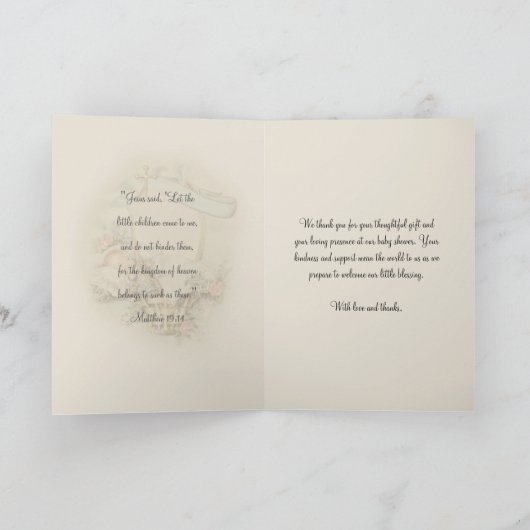 "Jesus said, "Let the
little children come to me,
and do not hinder them,
for the kingdom of heaven
belongs to such as these."
Matthew 19:14
We thank you for your thoughtful gift and
your loving presence at our baby shower. Your
kindness and support mean the world to us as we
prepare to welcome our little blessing.
With love and thanks,